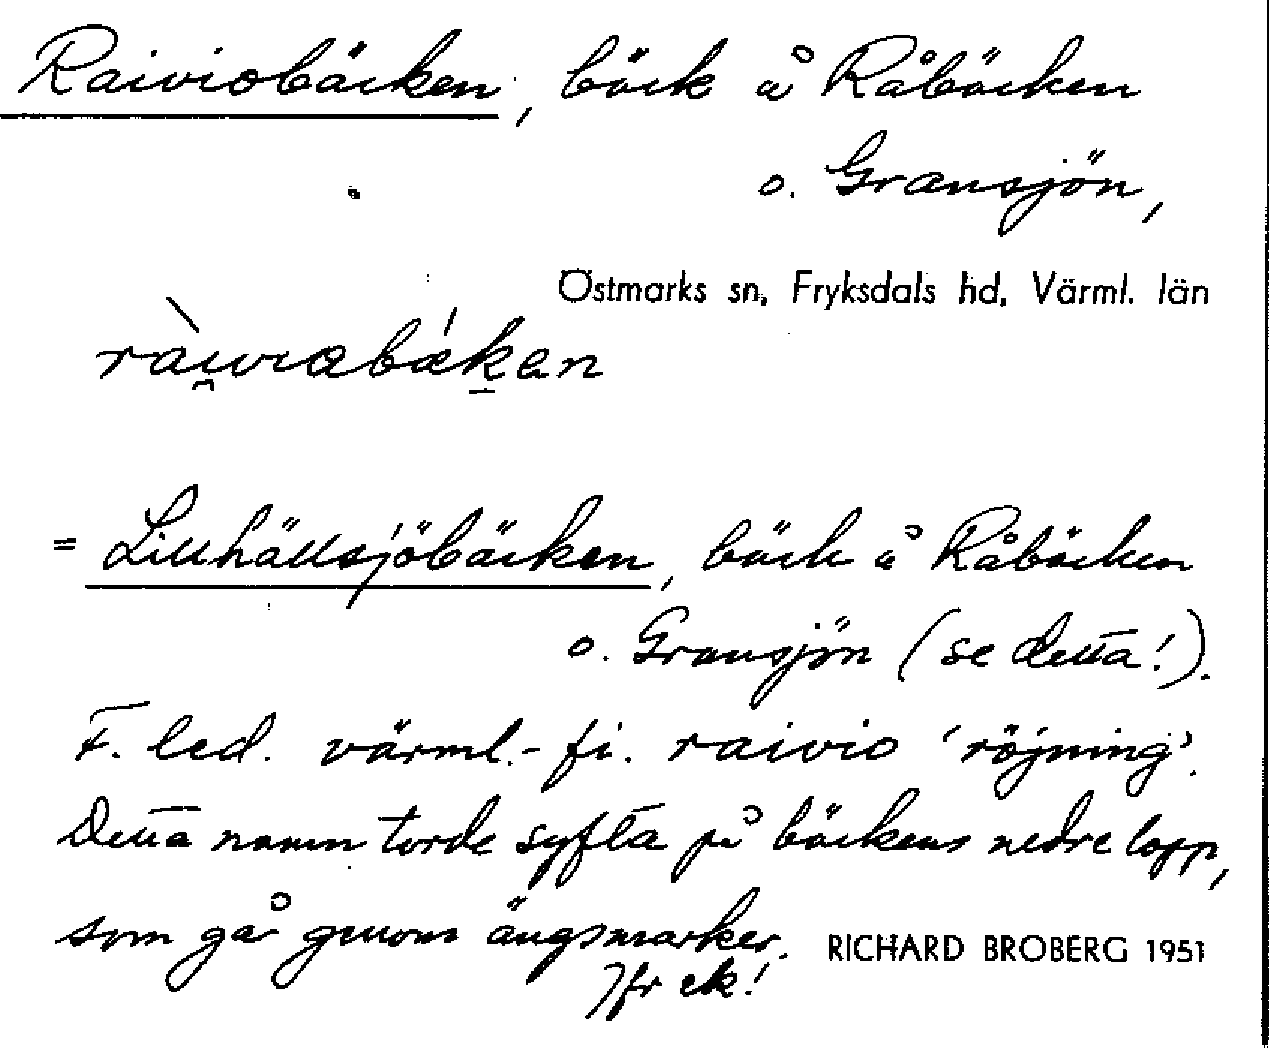 Raiviobäcken, bäck å Råbäcken
o. Gransjön,
Östmarks sn, Fryksdals hd, Värml. län
= Lillhällsjöbäcken, bäck å Råbäcken
o. Gransjön (se detta!).
F. led. värml.-fi. raivio 'röjning'.
Detta namn torde syfta på bäckens nedre lopp,
som går genom ängsmarker. RICHARD BROBERG 1951
Jfr ek!